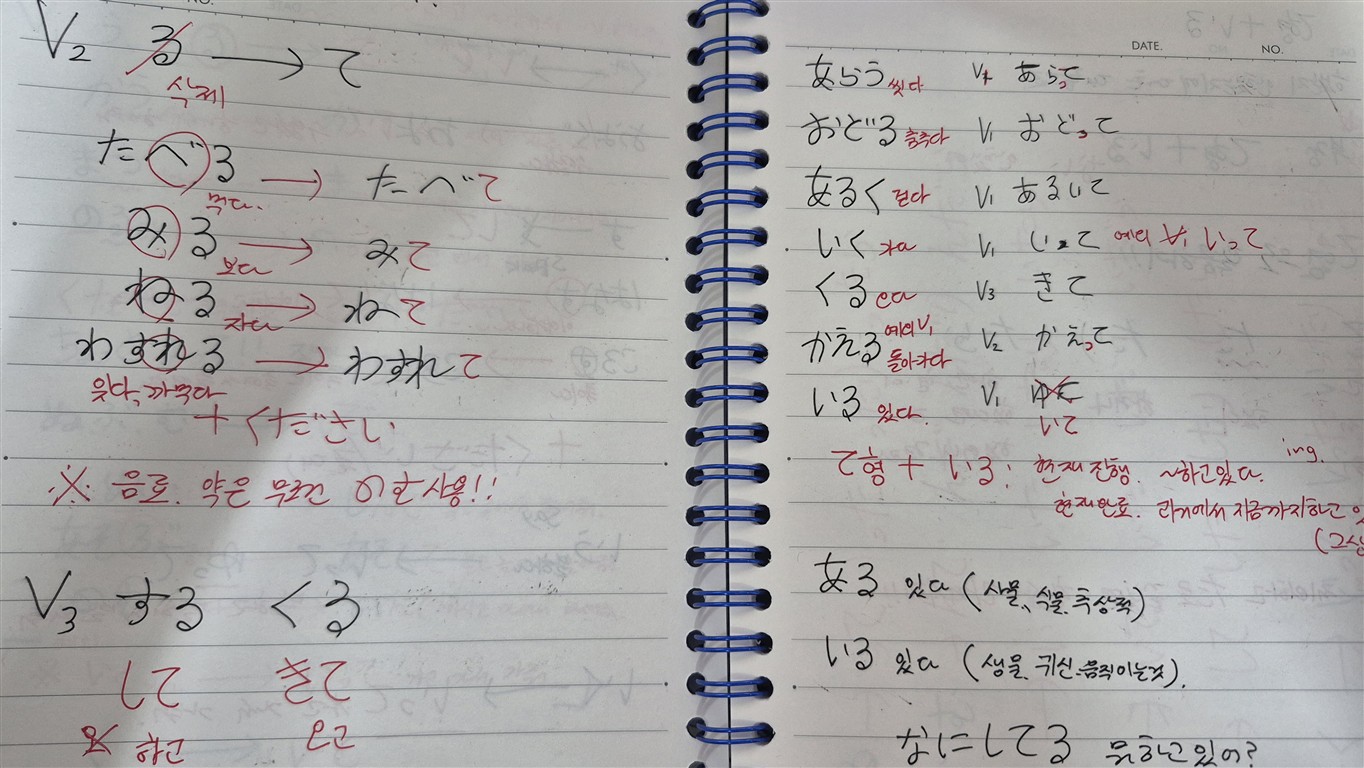 V2 る → て
삭제
たべる → たべて
먹다.
みる → みて
보다
ねる → ねて
자다
わすれる → わすれて
잊다, 까먹다
+ ください
※ 음료. 약은 무조건 のむ 사용!!
V3 する くる
して きて
하고 오고
DATE. NO.
あらう 씻다 V1 あらって
おどる 춤추다 V1 おどって
あるく 걷다 V1 あるいて
いく 가다 V1 いって 예외 V1 いって
くる 오다 V3 きて
かえる 예외 V1 돌아가다 V2 かえって
いる 있다. V1
いて
て형 + いる: 현재 진행. ~하고있다. ing.
현재완료. 과거에서 지금까지하고
ある 있다 (사물, 식물. 추상적)
いる 있다 (생물. 귀신. 움직이는것).
なにしてる 뭐하고 있어?